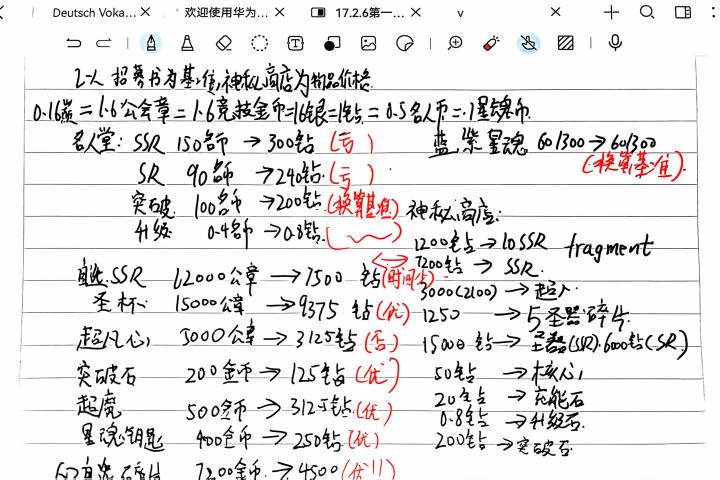 Deutsch Voka... ×
欢迎使用华为... ×
17.2.6第一... ×
v ×
以招募书为基值,神秘商店为物品价格.
0.16炭=1.6公会章=1.6竞技金币=16银=1钻=0.5名人币=1星魂币
名人堂: SSR 150名币→300钻(亏)
SR 90名币→240钻(亏)
突破 100名币→200钻(换算基准)
升级 0.4名币→0.8钻
SSR 12000公章→7500钻
圣杯 15000公章→9375钻(优)
超凡心 5000公章→3125钻(否)
突破石 200金币→125钻(优)
超魔 500金币→312.5钻(优)
星魂钥匙 400金币→250钻(优)
7200金币→4500(优!!)
蓝.紫星魂 60/300→60/300
(换算基准)
神秘商店:
1200钻→10SSR fragment
7200钻→SSR.
3000(2100)→超人
1250→5圣器碎片
15000钻→圣器(SSR).6000钻(SR)
50钻→核心
20钻→充能石
0.8钻→升级石
200钻→突破石